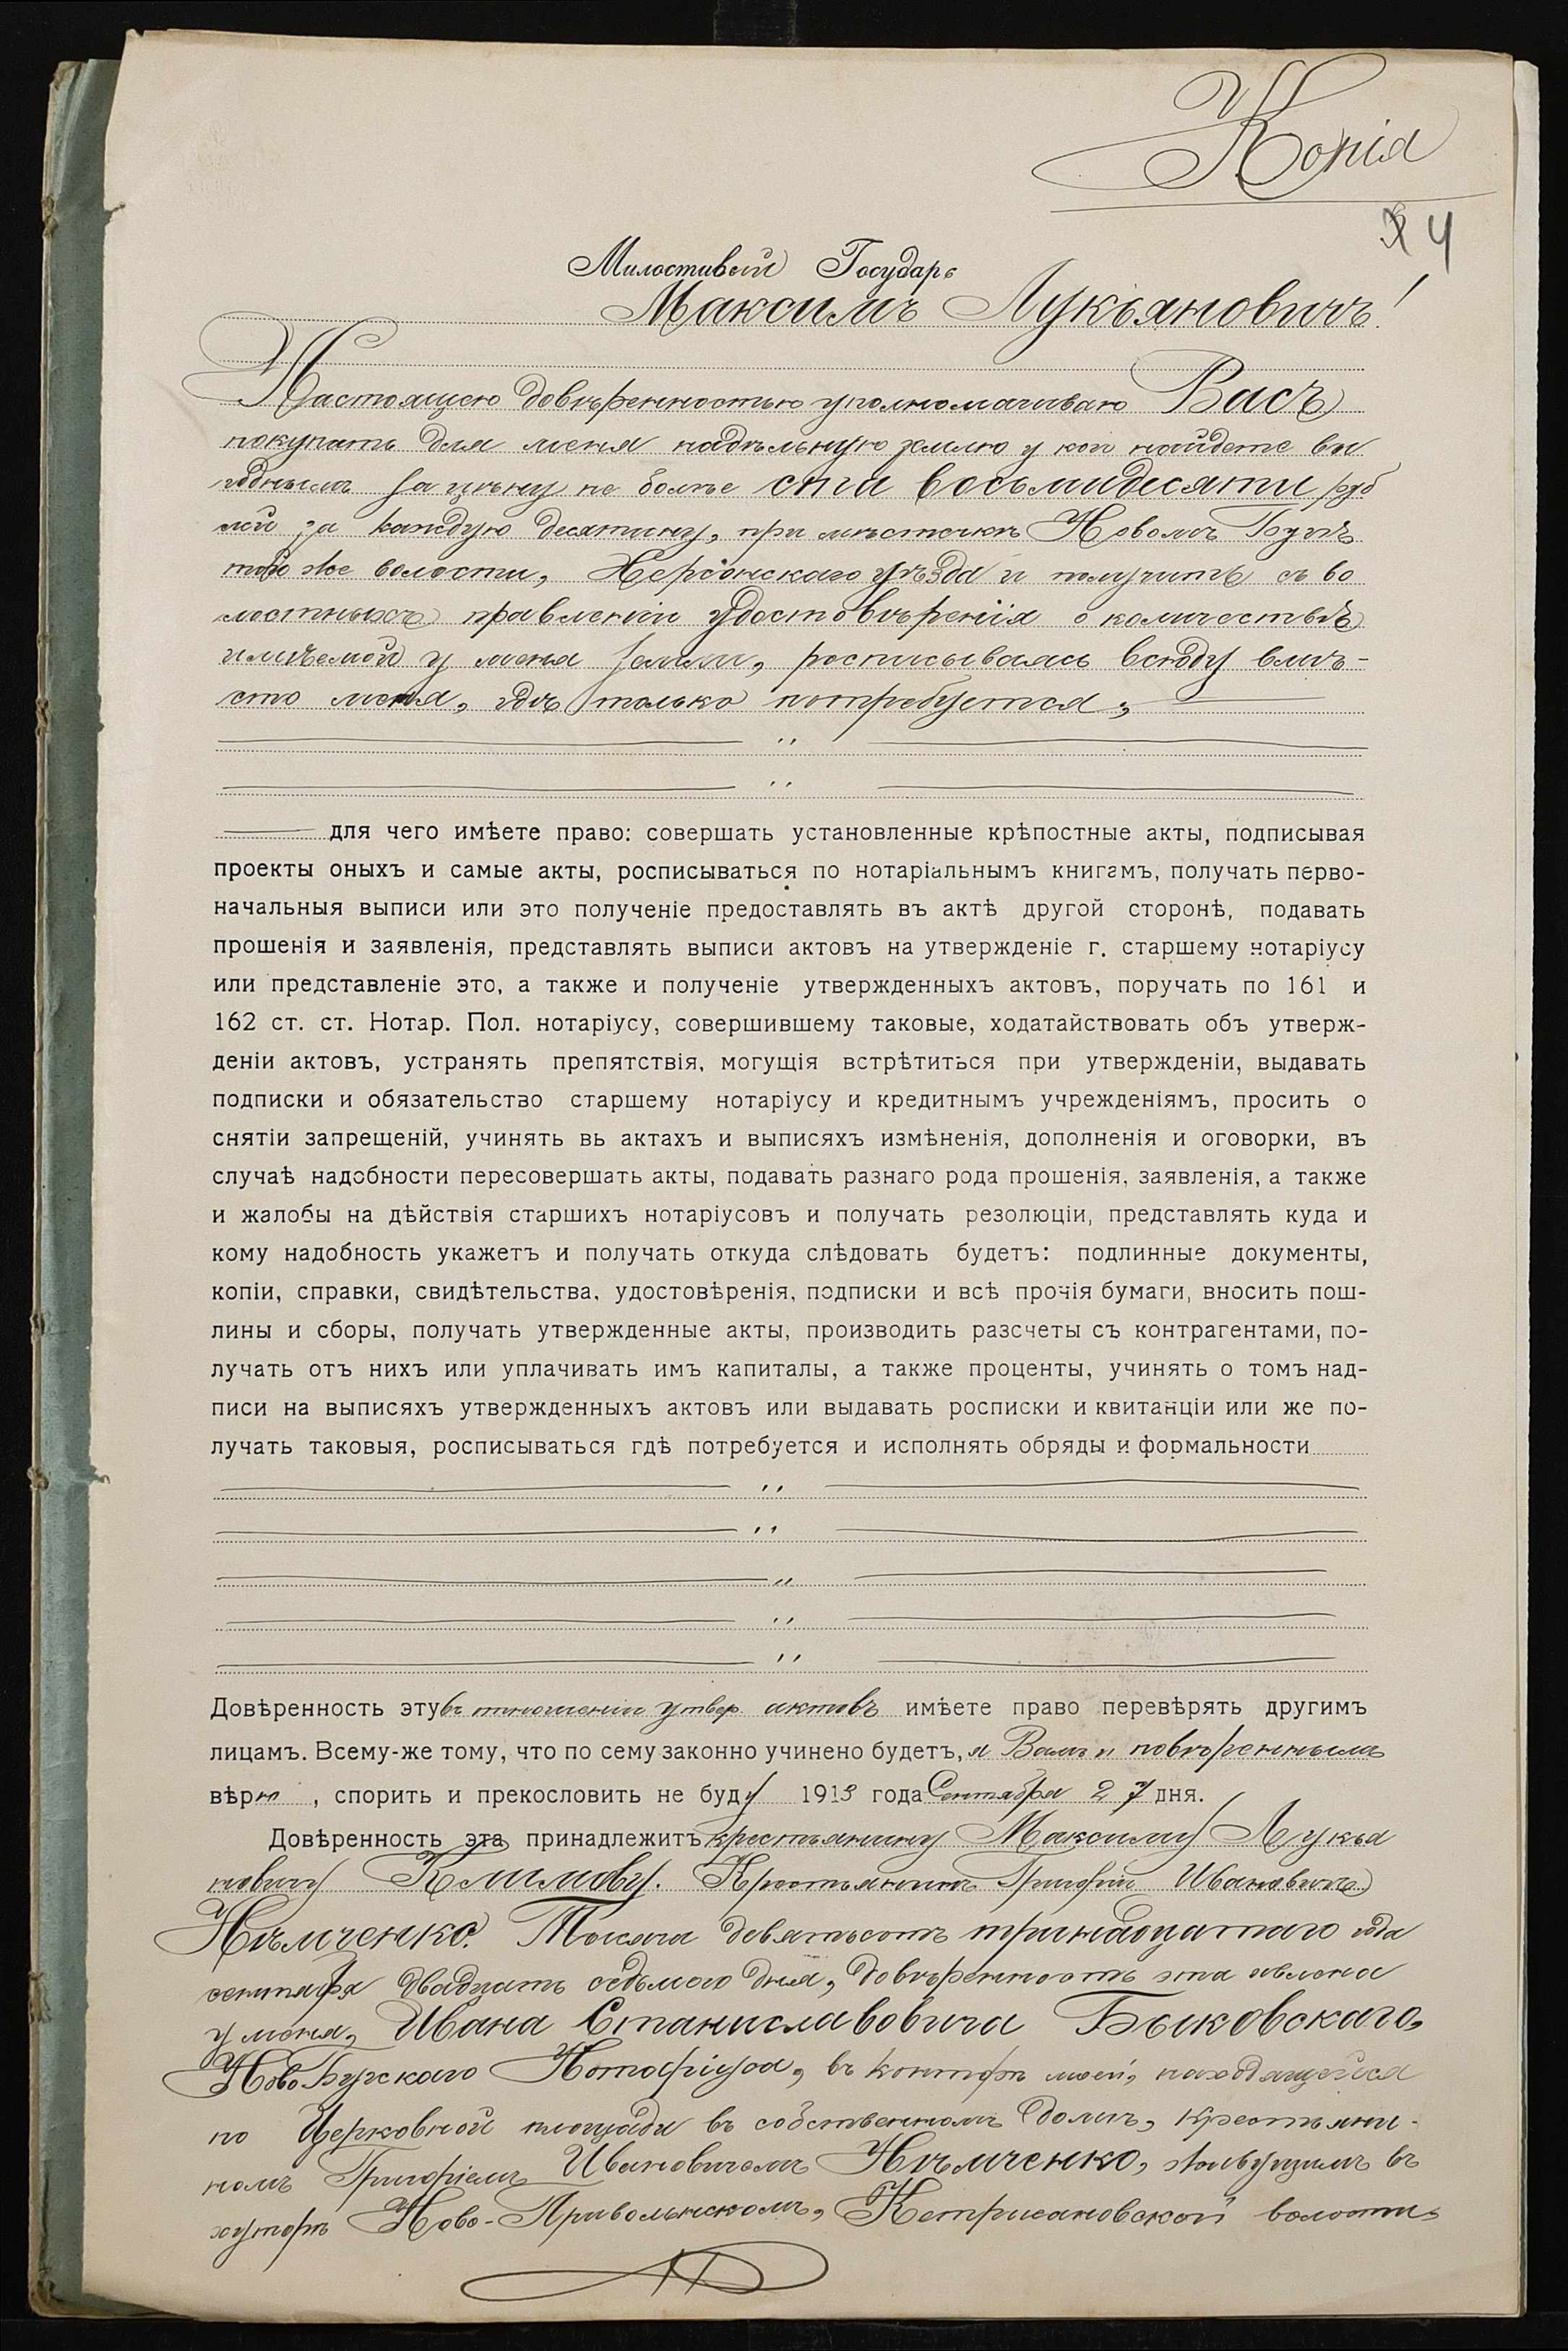 Копія
4
Милостивый Государь
Максимъ Лукьяновичъ!
Настоящею довѣренностью уполномачиваю Васъ
покупать для меня надѣльную землю у кои найдете вы
годнымъ за цѣну не болѣе ста восьмидесяти руб
лей за каждую десятину, при мѣстечкѣ Новомъ Бугѣ
той же волости, Херсонскаго уѣзда и получить съ во
лостныхъ правленій удостовѣренія о количествѣ
имѣемой у меня земли, росписываясь всюду вмѣ-
сто меня, гдѣ только потребуется,
для чего имѣете право: совершать установленные крѣпостные акты, подписывая
проекты оныхъ и самые акты, росписываться по нотаріальнымъ книгамъ, получать перво-
начальныя выписи или это полученіе предоставлять въ актѣ другой сторонѣ, подавать
прошенія и заявленія, представлять выписи актовъ на утвержденіе г. старшему нотаріусу
или представленіе это, а также и полученіе утвержденныхъ актовъ, поручать по 161 и
162 ст. ст. Нотар. Пол. нотаріусу, совершившему таковые, ходатайствовать объ утверж-
деніи актовъ, устранять препятствія, могущія встрѣтиться при утвержденіи, выдавать
подписки и обязательство старшему нотаріусу и кредитнымъ учрежденіямъ, просить о
снятіи запрещеній, учинять вь актахъ и выписяхъ измѣненія, дополненія и оговорки, въ
случаѣ надобности пересовершать акты, подавать разнаго рода прошенія, заявленія, а также
и жалобы на дѣйствія старшихъ нотаріусовъ и получать резолюціи, представлять куда и
кому надобность укажетъ и получать откуда слѣдовать будетъ: подлинные документы,
копіи, справки, свидѣтельства, удостовѣренія, подписки и всѣ прочія бумаги, вносить пош-
лины и сборы, получать утвержденные акты, производить разсчеты съ контрагентами, по-
лучать отъ нихъ или уплачивать имъ капиталы, а также проценты, учинять о томъ над-
писи на выписяхъ утвержденныхъ актовъ или выдавать росписки и квитанціи или же по-
лучать таковыя, росписываться гдѣ потребуется и исполнять обряды и формальности
Довѣренность эту въ отношеніи утвер. актовъ имѣете право перевѣрять другимъ
лицамъ. Всему-же тому, что по сему законно учинено будетъ, я Вамъ и повѣреннымъ
вѣрю, спорить и прекословить не буду 1913 года Сентября 27 дня.
Довѣренность эта принадлежитъ крестьянину Максиму Лукья
новичу Климову. Крестьянинъ Григорій Ивановичъ
Нѣмченко. Тысяча девятьсотъ тринадцатаго года
сентября двадцать седьмого дня, довѣренность эта явлена
у меня, Ивана Станиславовича Быковскаго,
Ново Бугскаго Нотаріуса, въ конторѣ моей, находящейся
по Церковной площади въ собственномъ домѣ, крестьяни-
номъ Григоріемъ Ивановичемъ Нѣмченко, живущимъ въ
хуторѣ Ново-Привольнскомъ, Кетрисановской волости,